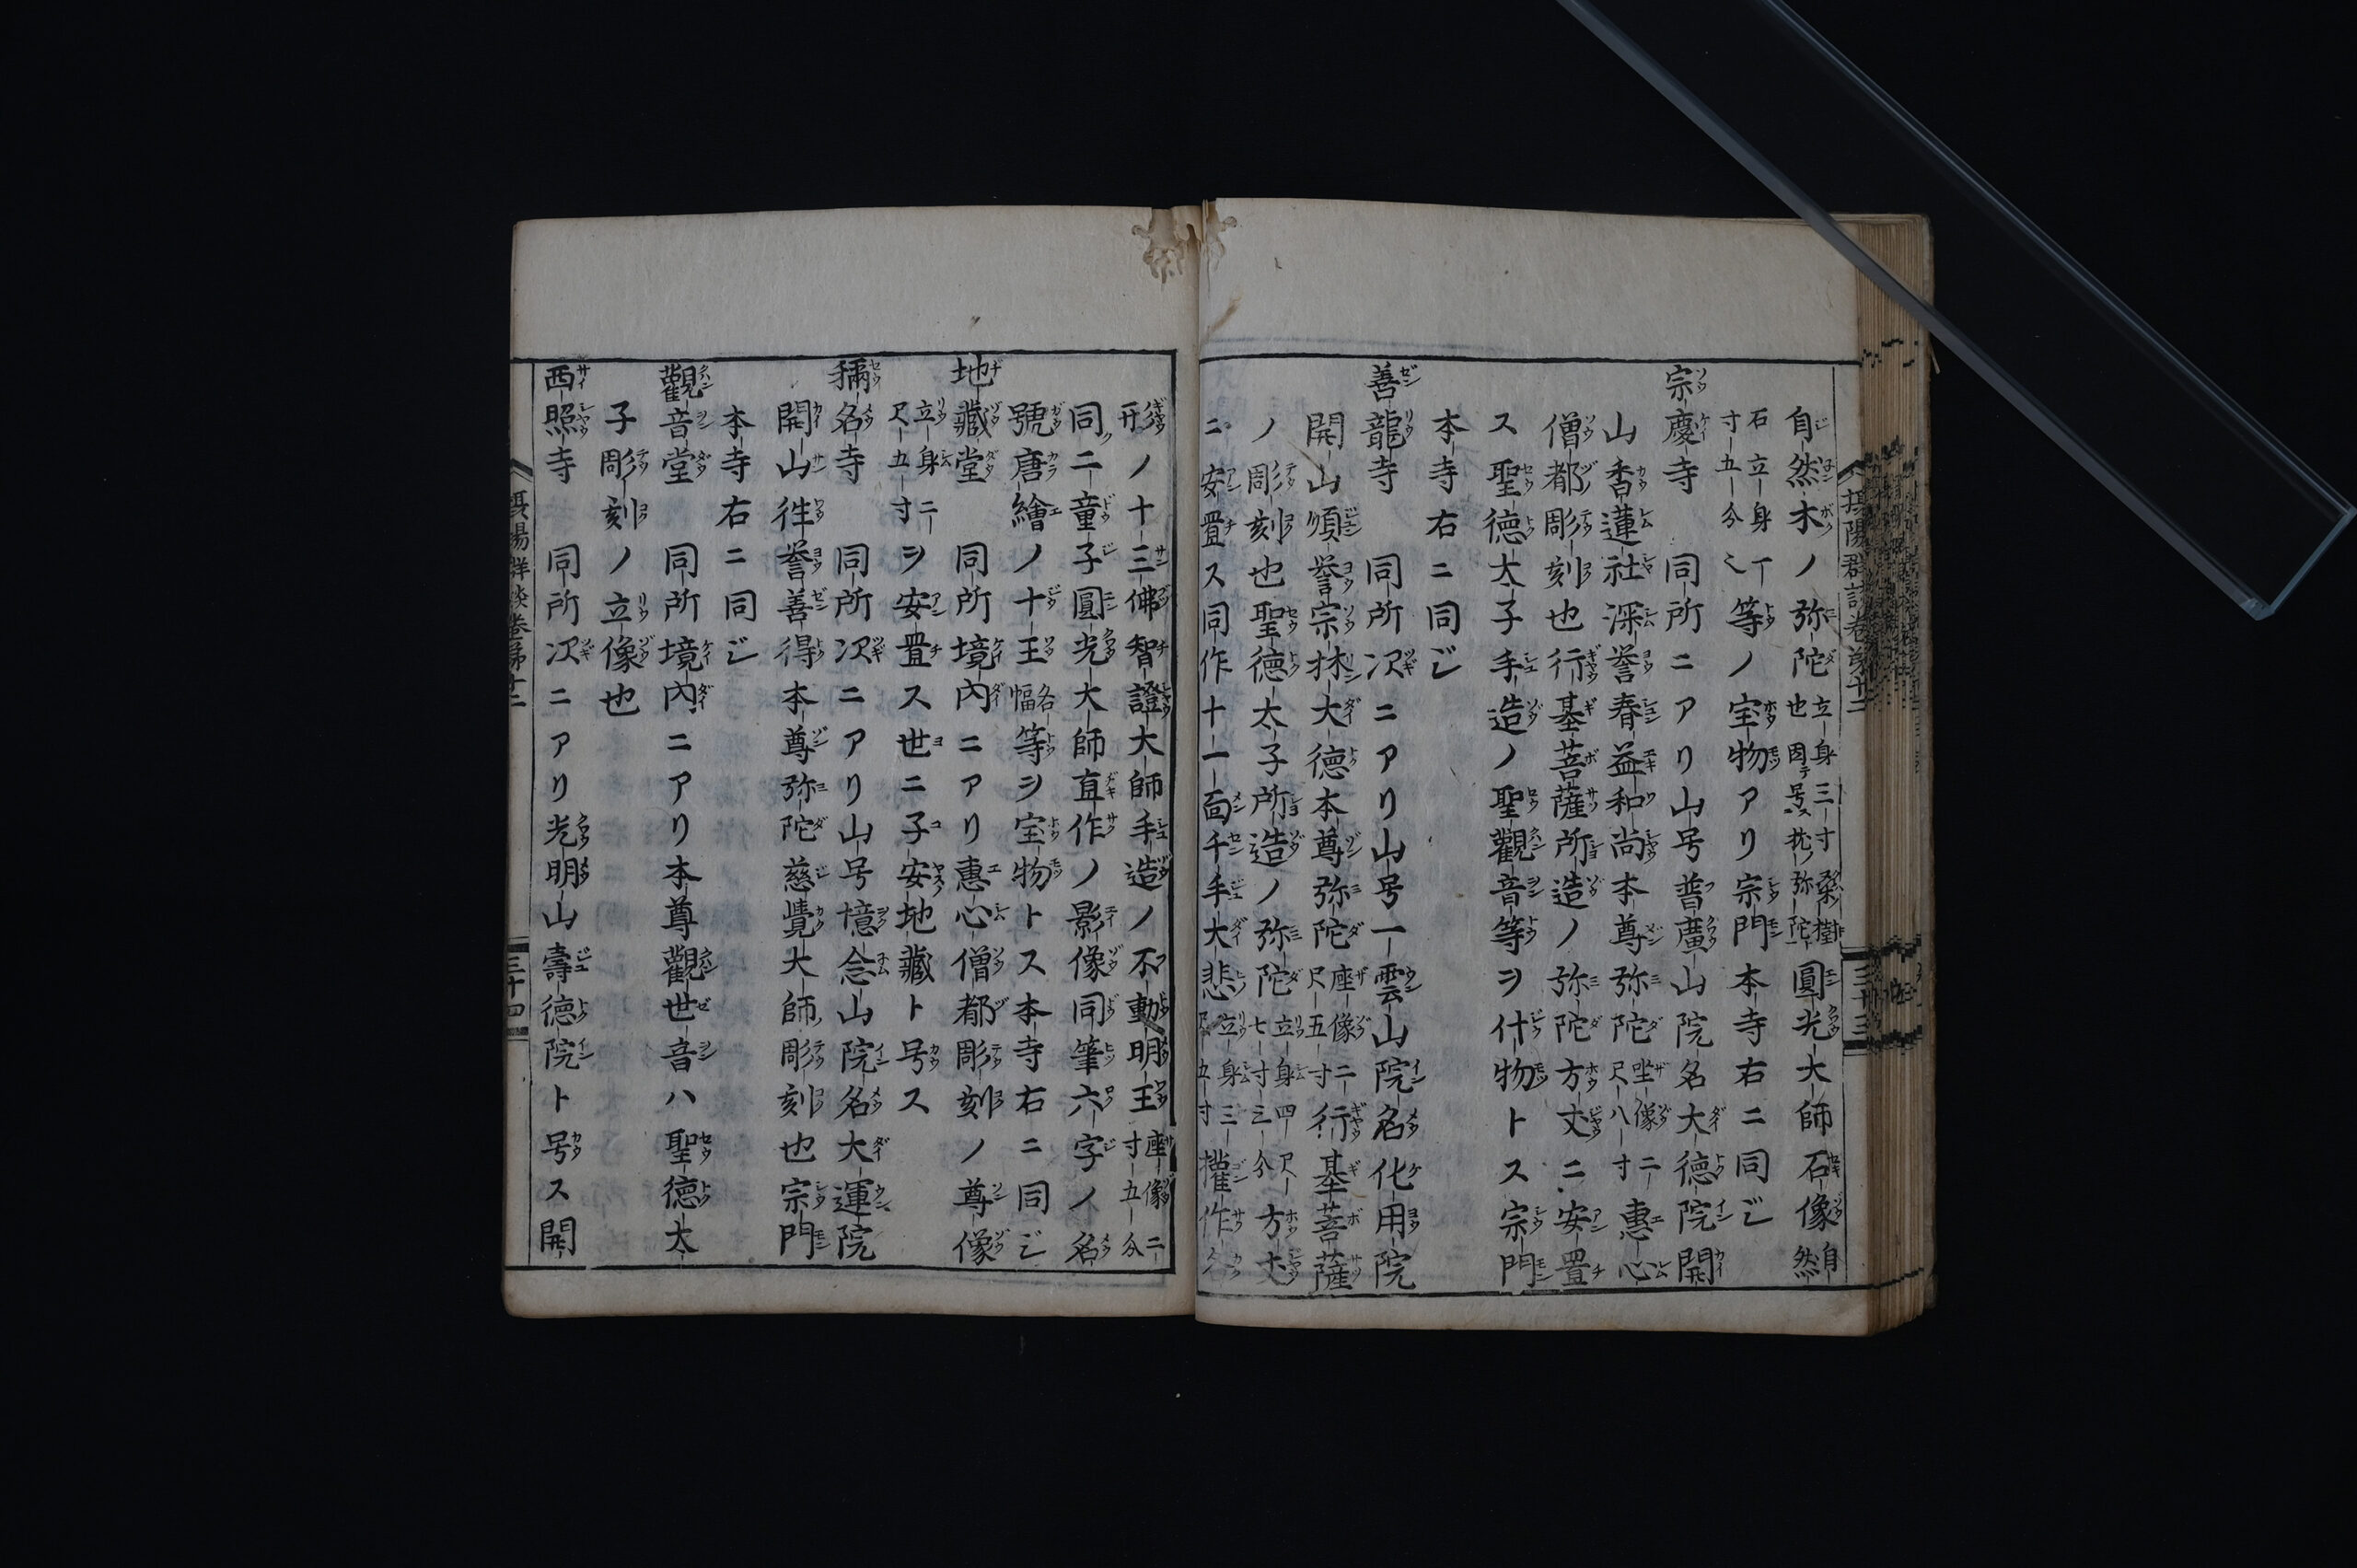 自然木ノ弥陀立身三寸桑樹也因テ号ス枕ノ弥陀圓光大師石像自然
石立身一寸五分等ノ宝物アリ宗門本寺右ニ同シ
宗慶寺 同所ニアリ山号普廣山院名大德院開
山香蓮社深誉春益和尚本尊弥陀坐像二尺八寸惠心
僧都彫刻也行基菩薩所造ノ弥陀方丈ニ安置
ス聖徳太子手造ノ聖觀音等ヲ什物トス宗門
本寺右ニ同シ
善龍寺 同所次ニアリ山号一雲山院名化用院
開山順誉宗林大德本尊弥陀座像二尺五寸行基菩薩
ノ彫刻也聖徳太子所造ノ弥陀立身四尺七寸三分方丈
ニ安置ス同作十一面千手大悲立身三尺五寸權作
ノ十三佛智證大師手造ノ不動明王座像二寸五分
同二童子圓光大師直作ノ影像同筆六字ノ名
號唐繪ノ十王各幅等ヲ宝物トス本寺右ニ同シ
地藏堂 同所境内ニアリ惠心僧都彫刻ノ尊像
立身二尺五寸ヲ安置ス世ニ子安地藏ト号ス
稱名寺 同所次ニアリ山号憶念山院名大運院
開山徃誉善得本尊弥陀慈覺大師彫刻也宗門
本寺右ニ同シ
觀音堂 同所境内ニアリ本尊觀世音ハ聖徳太
子彫刻ノ立像也
西照寺 同所次ニアリ光明山壽徳院ト号ス開
攝陽群談卷第十二
三十三
三十四